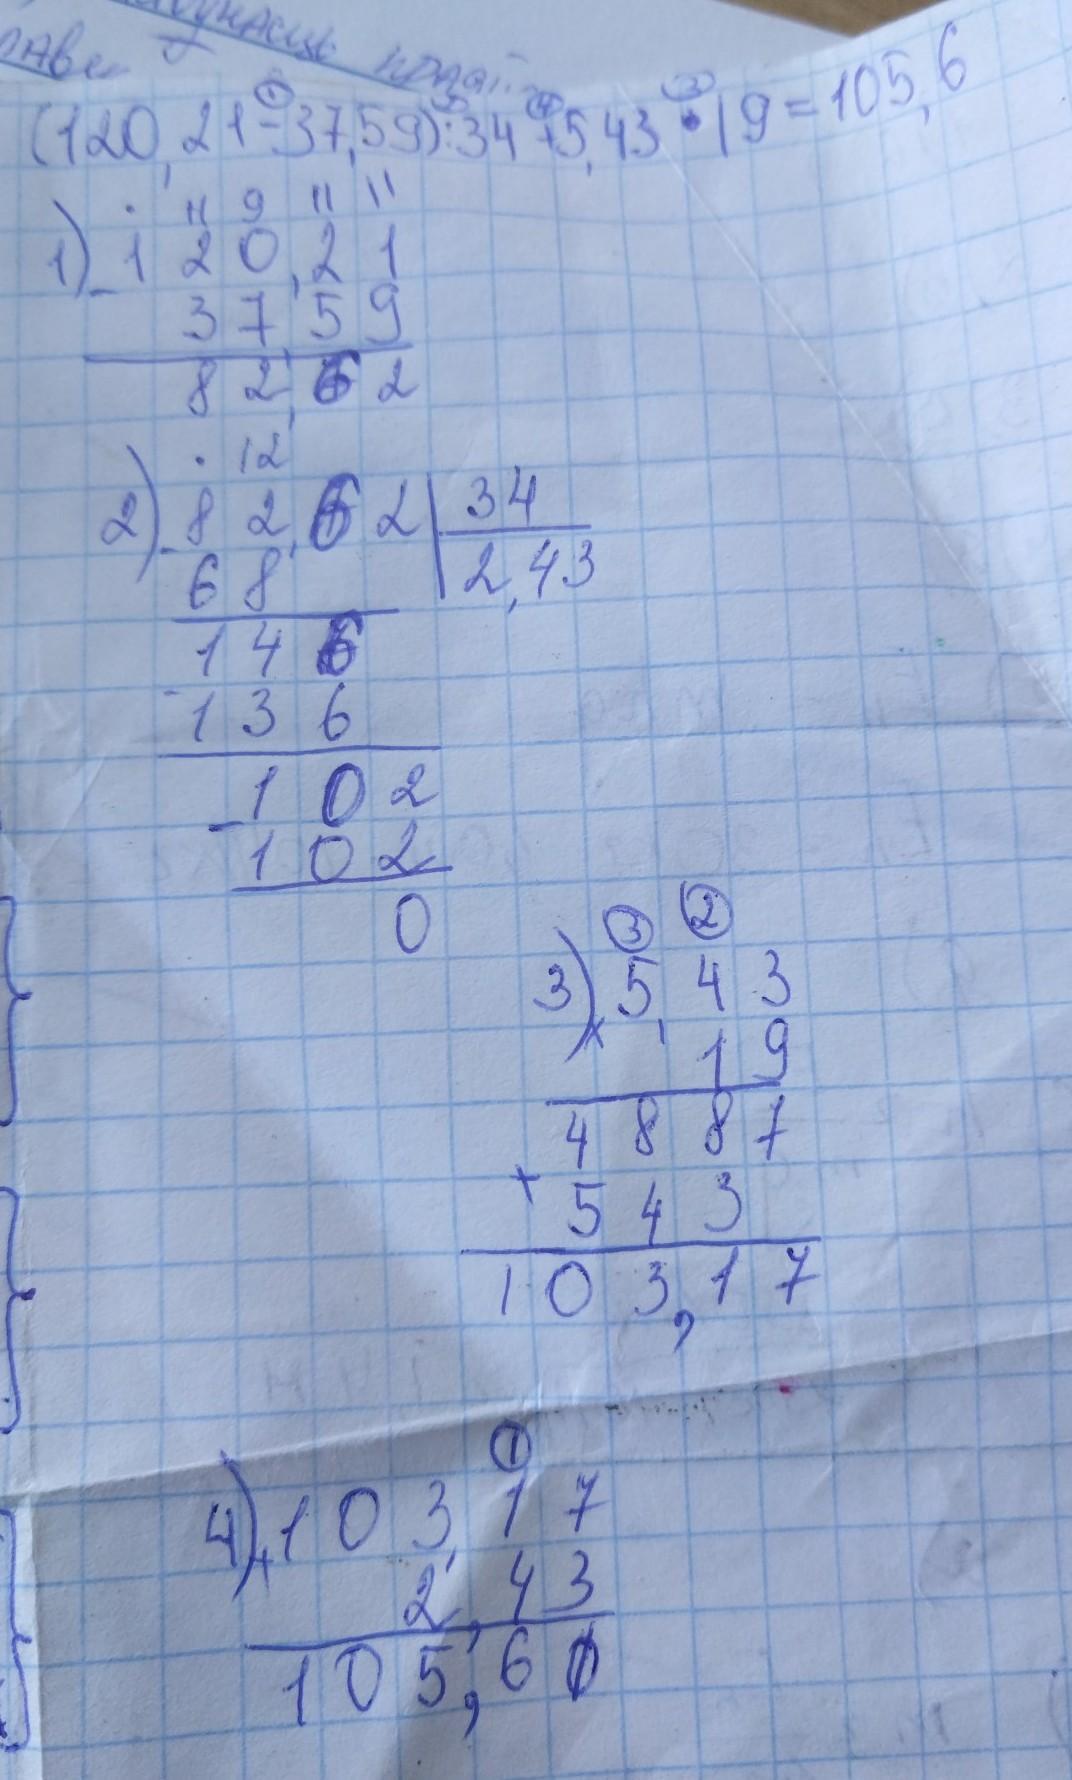 (120,21-37,59):34+5,43·19=105,6
1) 120,21
37,59
82,62
2) 82,62 34
68 2,43
146
136
102
102
0
3) 5,43
19
4887
543
103,17
4) 103,17
2,43
105,60